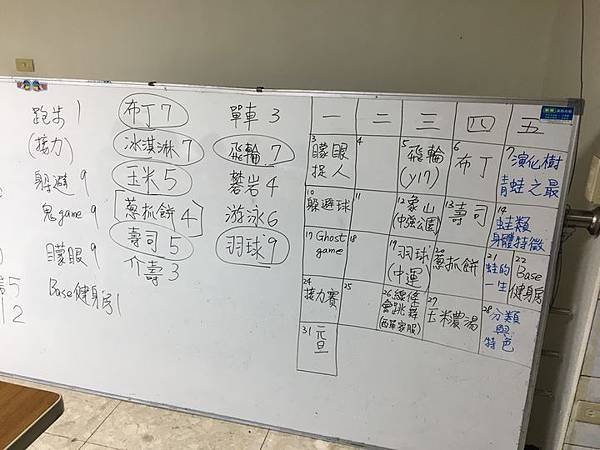 跑步 1
(接力)
躲避 9
鬼game 9
矇眼 9
Base健身房 1
5
12
布丁 7
冰淇淋 7
玉米 5
蔥抓餅 4
壽司 5
介壽 3
單車 3
飛輪 7
攀岩 4
游泳 6
羽球 9
一 二 三 四 五
3 矇眼
捉人
4
5 飛輪
(y17)
6 布丁
7 演化樹
青蛙之最
10
躲避球
11
12 象山
(中強公園)
13 壽司
14 蛙類
身體特徵
17 Ghost
game
18
19 羽球
(中運)
蔥抓餅
21 蛙的
一生
22 Base
健身房
24
接力賽
25
27
玉米濃湯
28 分類
與
特色
31 元
旦